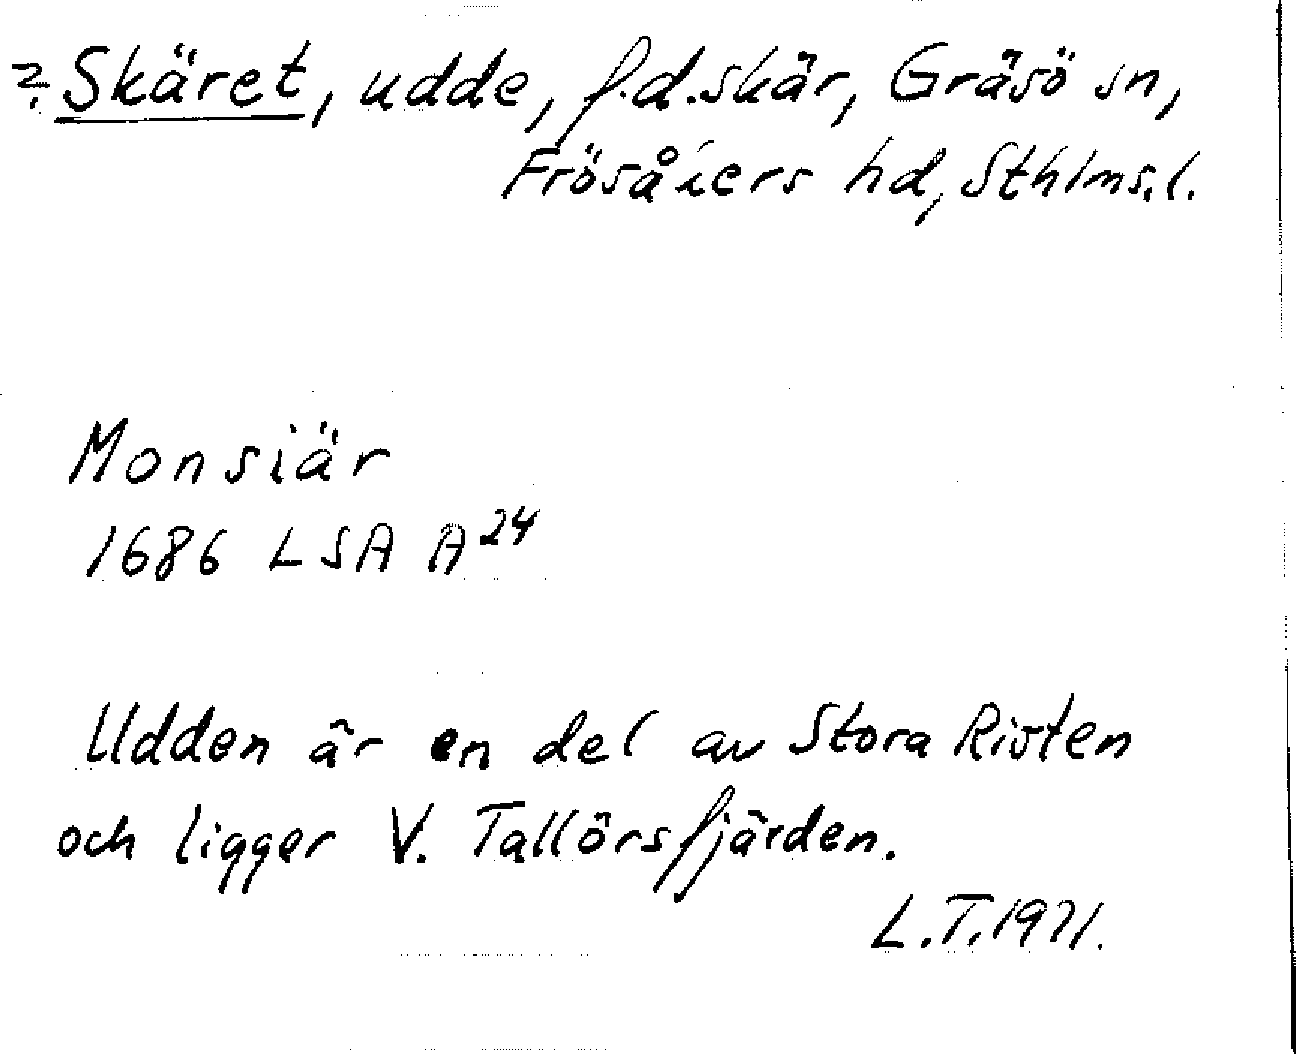 ? Skäret, udde, f.d.skär, Gräsö sn,
Frösåkers hd, Sthlms.l.
Monsiär
1686 LSA A24
Udden är en del av Stora Risten
och ligger V. Tallörsfjärden.
L.T.1971.